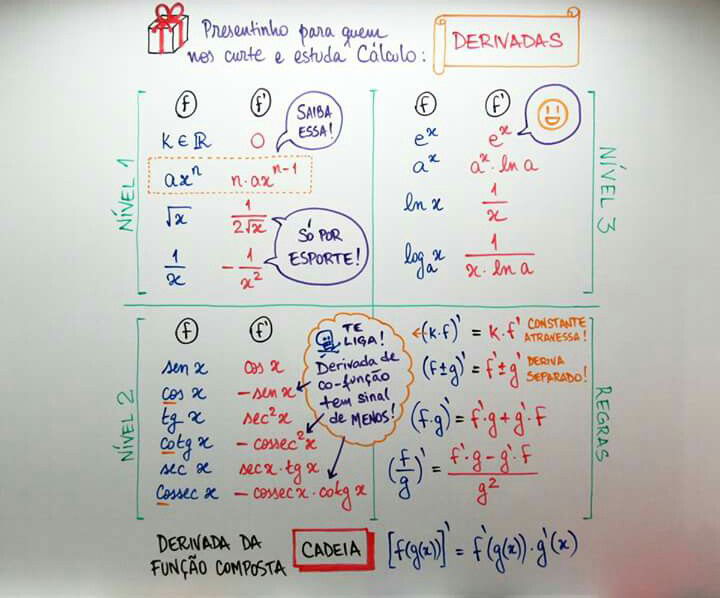 Presentinho para quem
nos curte e estuda Cálculo:
DERIVADAS
NÍVEL 1
f f'
K ∈ ℝ 0
SAIBA
ESSA!
axⁿ n·axⁿ⁻¹
√x 1/(2√x)
1/x -1/x²
SÓ POR
ESPORTE!
NÍVEL 3
f f'
eˣ eˣ
aˣ aˣ·ln a
ln x 1/x
logₐx 1/(x·ln a)
NÍVEL 2
f f'
sen x cos x
cos x -sen x
tg x sec²x
cotg x -cossec²x
sec x sec x·tg x
cossec x -cossec x·cotg x
TE
LIGA!
Derivada de
co-função
tem sinal
de MENOS!
REGRAS
(k·f)' = k·f' CONSTANTE
ATRAVESSA!
(f±g)' = f'±g' DERIVA
SEPARADO!
(f·g)' = f'·g+g'·f
(f/g)' = (f'·g-g'·f)/g²
DERIVADA DA
FUNÇÃO COMPOSTA
CADEIA
[f(g(x))]' = f'(g(x))·g'(x)